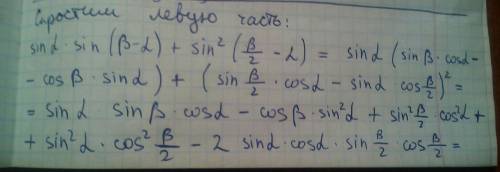 Упростим левую часть:
sin α · sin (β-α) + sin² (β/2 - α) = sin α (sin β · cos α -
- cos β · sin α) + (sin β/2 · cos α - sin α cos β/2)² =
= sin α sin β · cos α - cos β · sin² α + sin² β/2 · cos² α +
+ sin² α · cos² β/2 - 2 sin α · cos α · sin β/2 · cos β/2 =